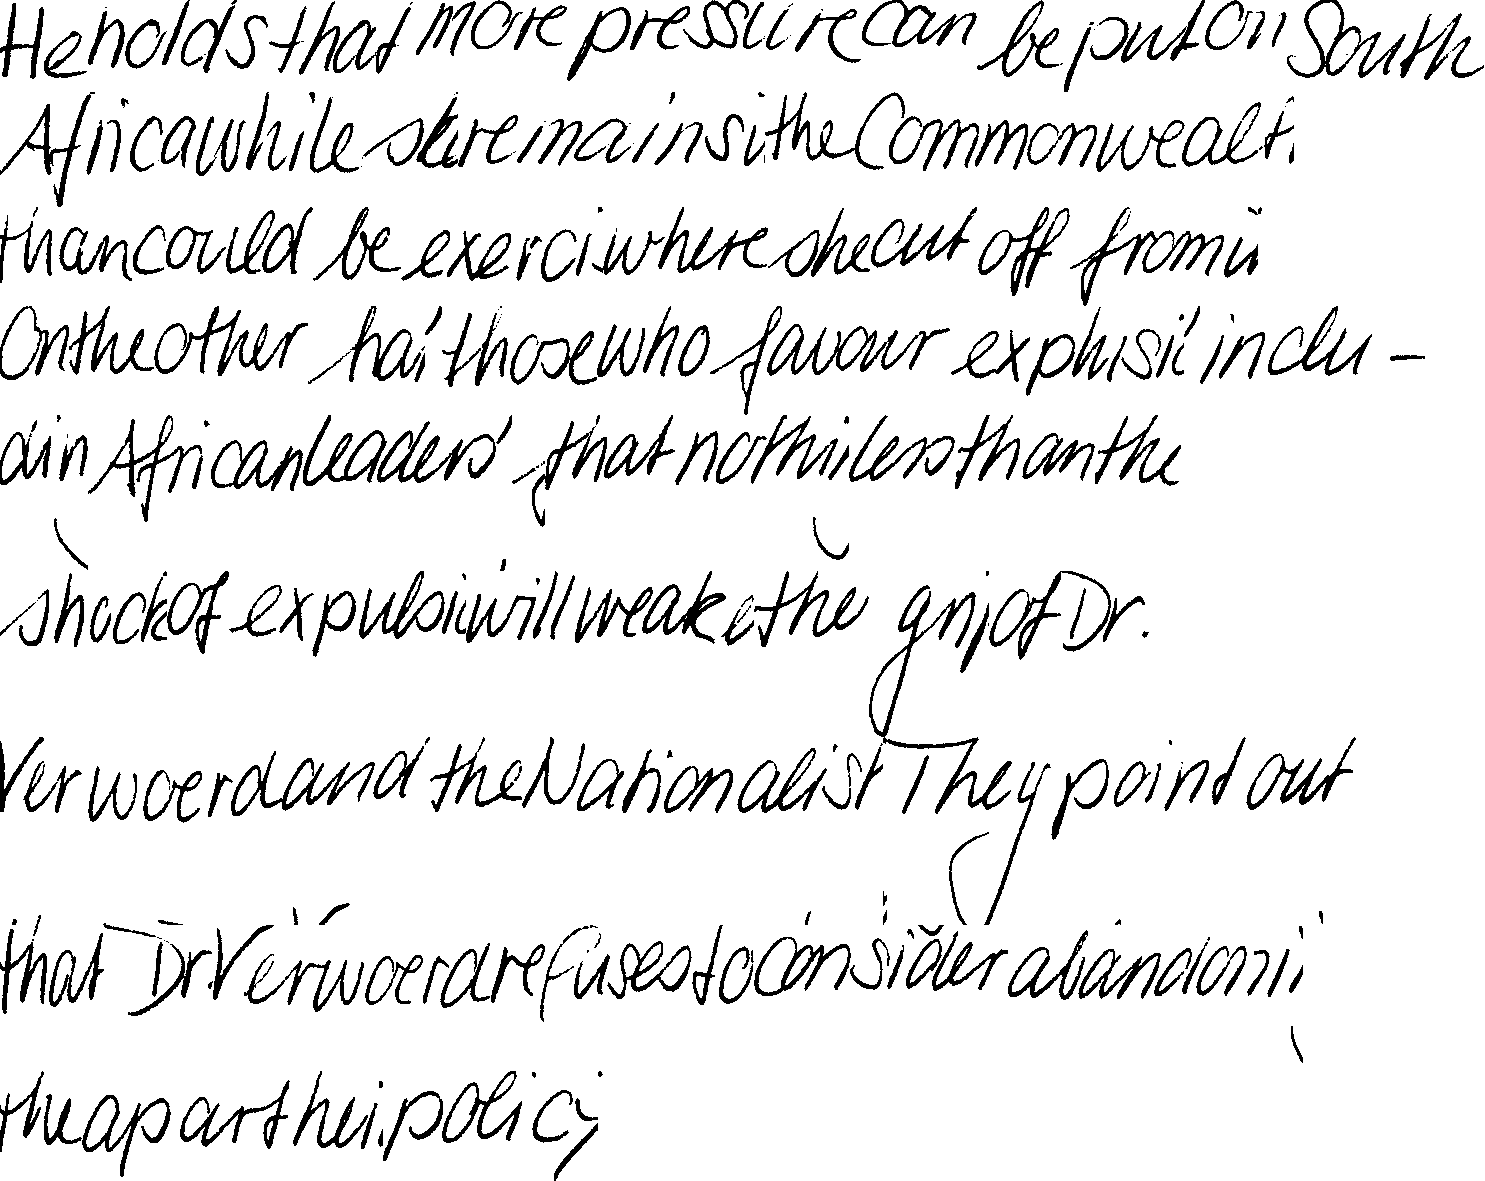 He holds that more pressure can be put on South
Africa while she remains i the Commonwealt.
than could be exerci. where she cut off from i
On the other ha those who favour explusi inclu-
din African leaders that nothi less than the
shock of expulsi will weake the grip of Dr.
Verwoerd and the Nationalist They point out
that Dr Verwoerd refuses to consider abandoni
the aparthei. policy